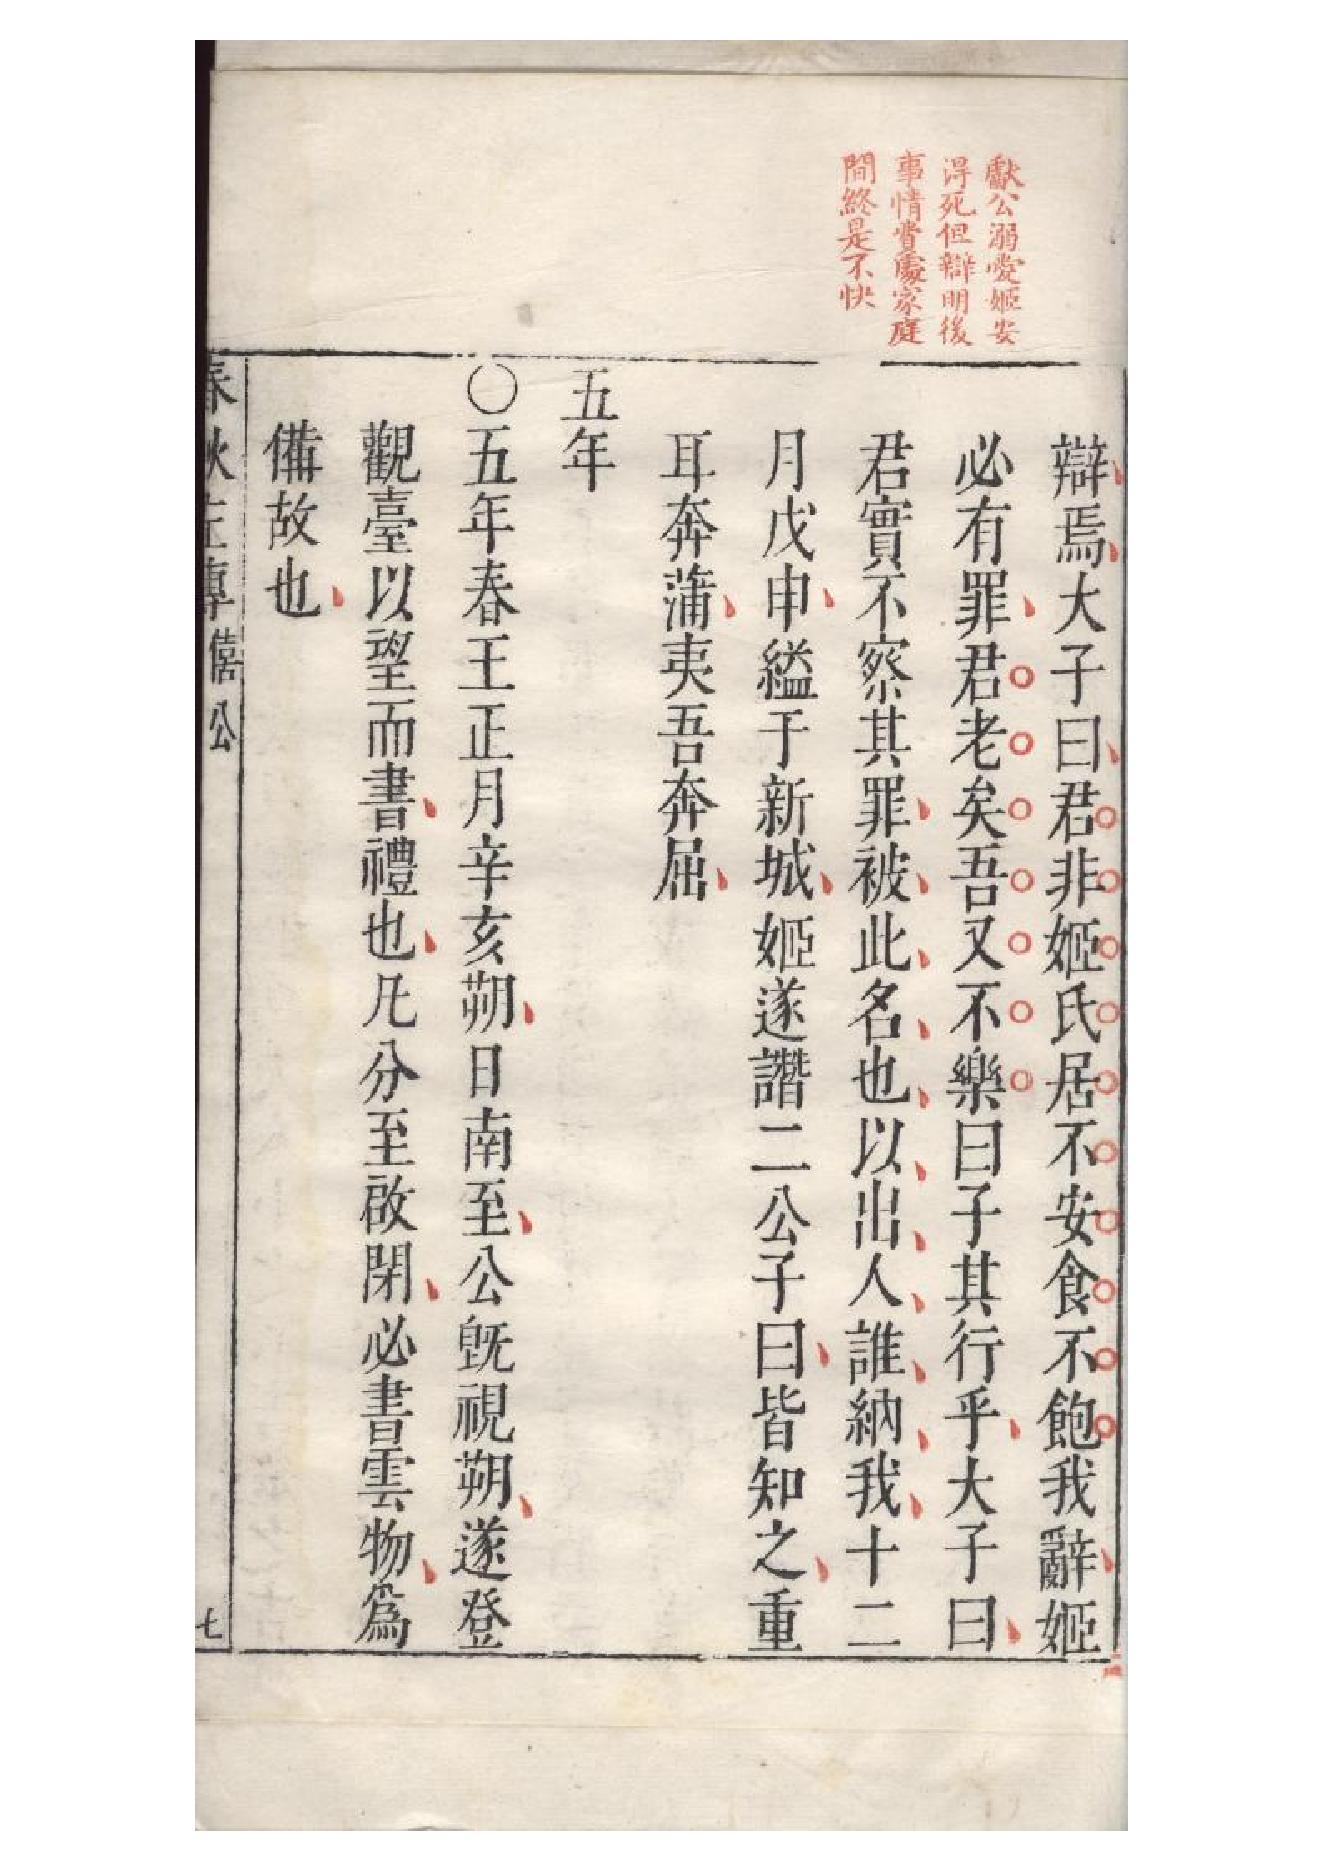 獻公溺愛姬安
得死但辯明後
事情費處家庭
間終是不快
辯焉大子曰君非姬氏居不安食不飽我辭姬
必有罪君老矣吾又不樂曰子其行乎大子曰
君實不察其罪被此名也以出人誰納我十二
月戊申縊于新城姬遂譖二公子曰皆知之重
耳奔蒲夷吾奔屈
五年
〇五年春王正月辛亥朔日南至公旣視朔遂登
觀臺以望而書禮也凡分至啟閉必書雲物爲
備故也
春秋左傳 僖公 七